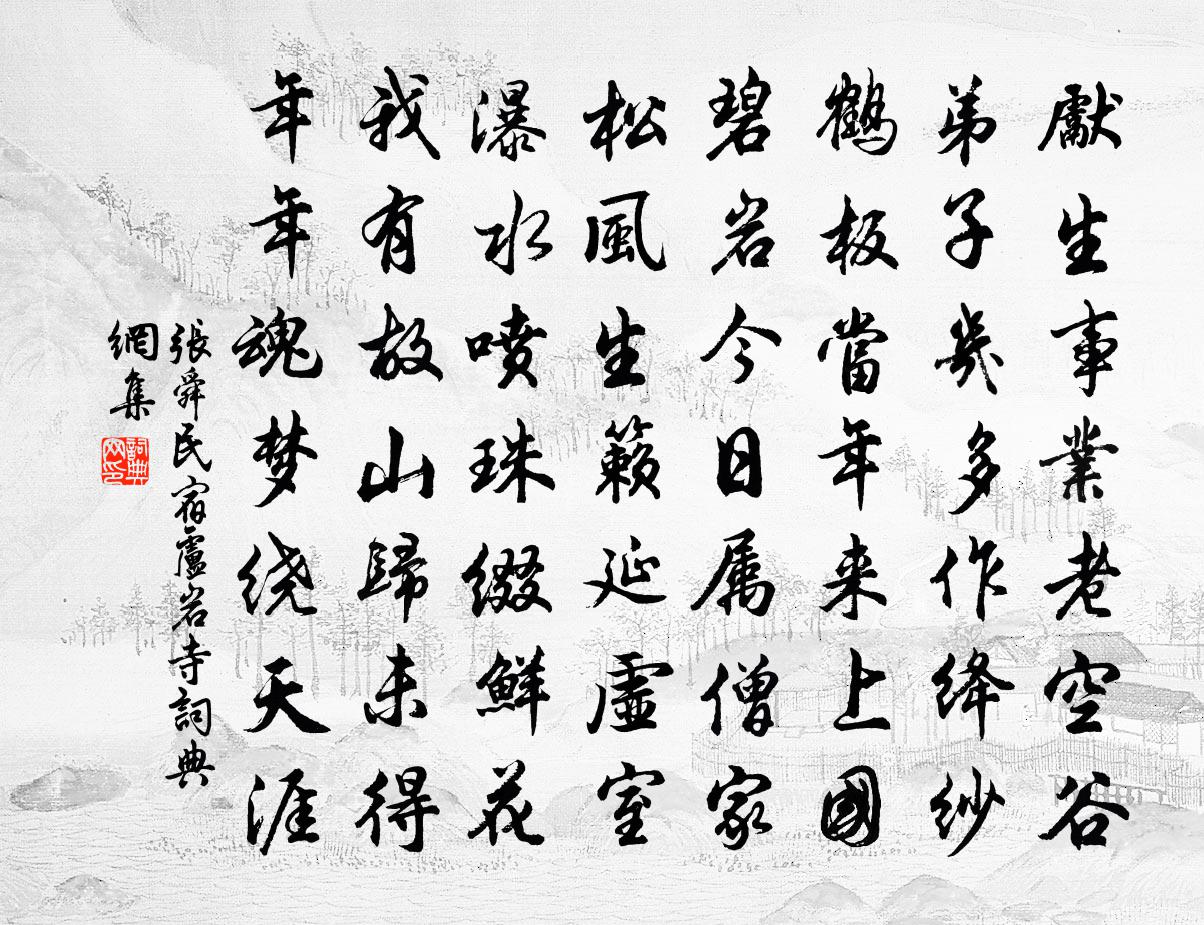 獻生事業老空谷
弟子幾多作绛纱
鶴板當年来上國
碧岩今日属僧家
松風生籟延虛室
瀑水喷珠缀鮮花
我有故山歸未得
年年魂梦绕天涯
張舜民宿盧岩寺詞典
網集
詞典
网印